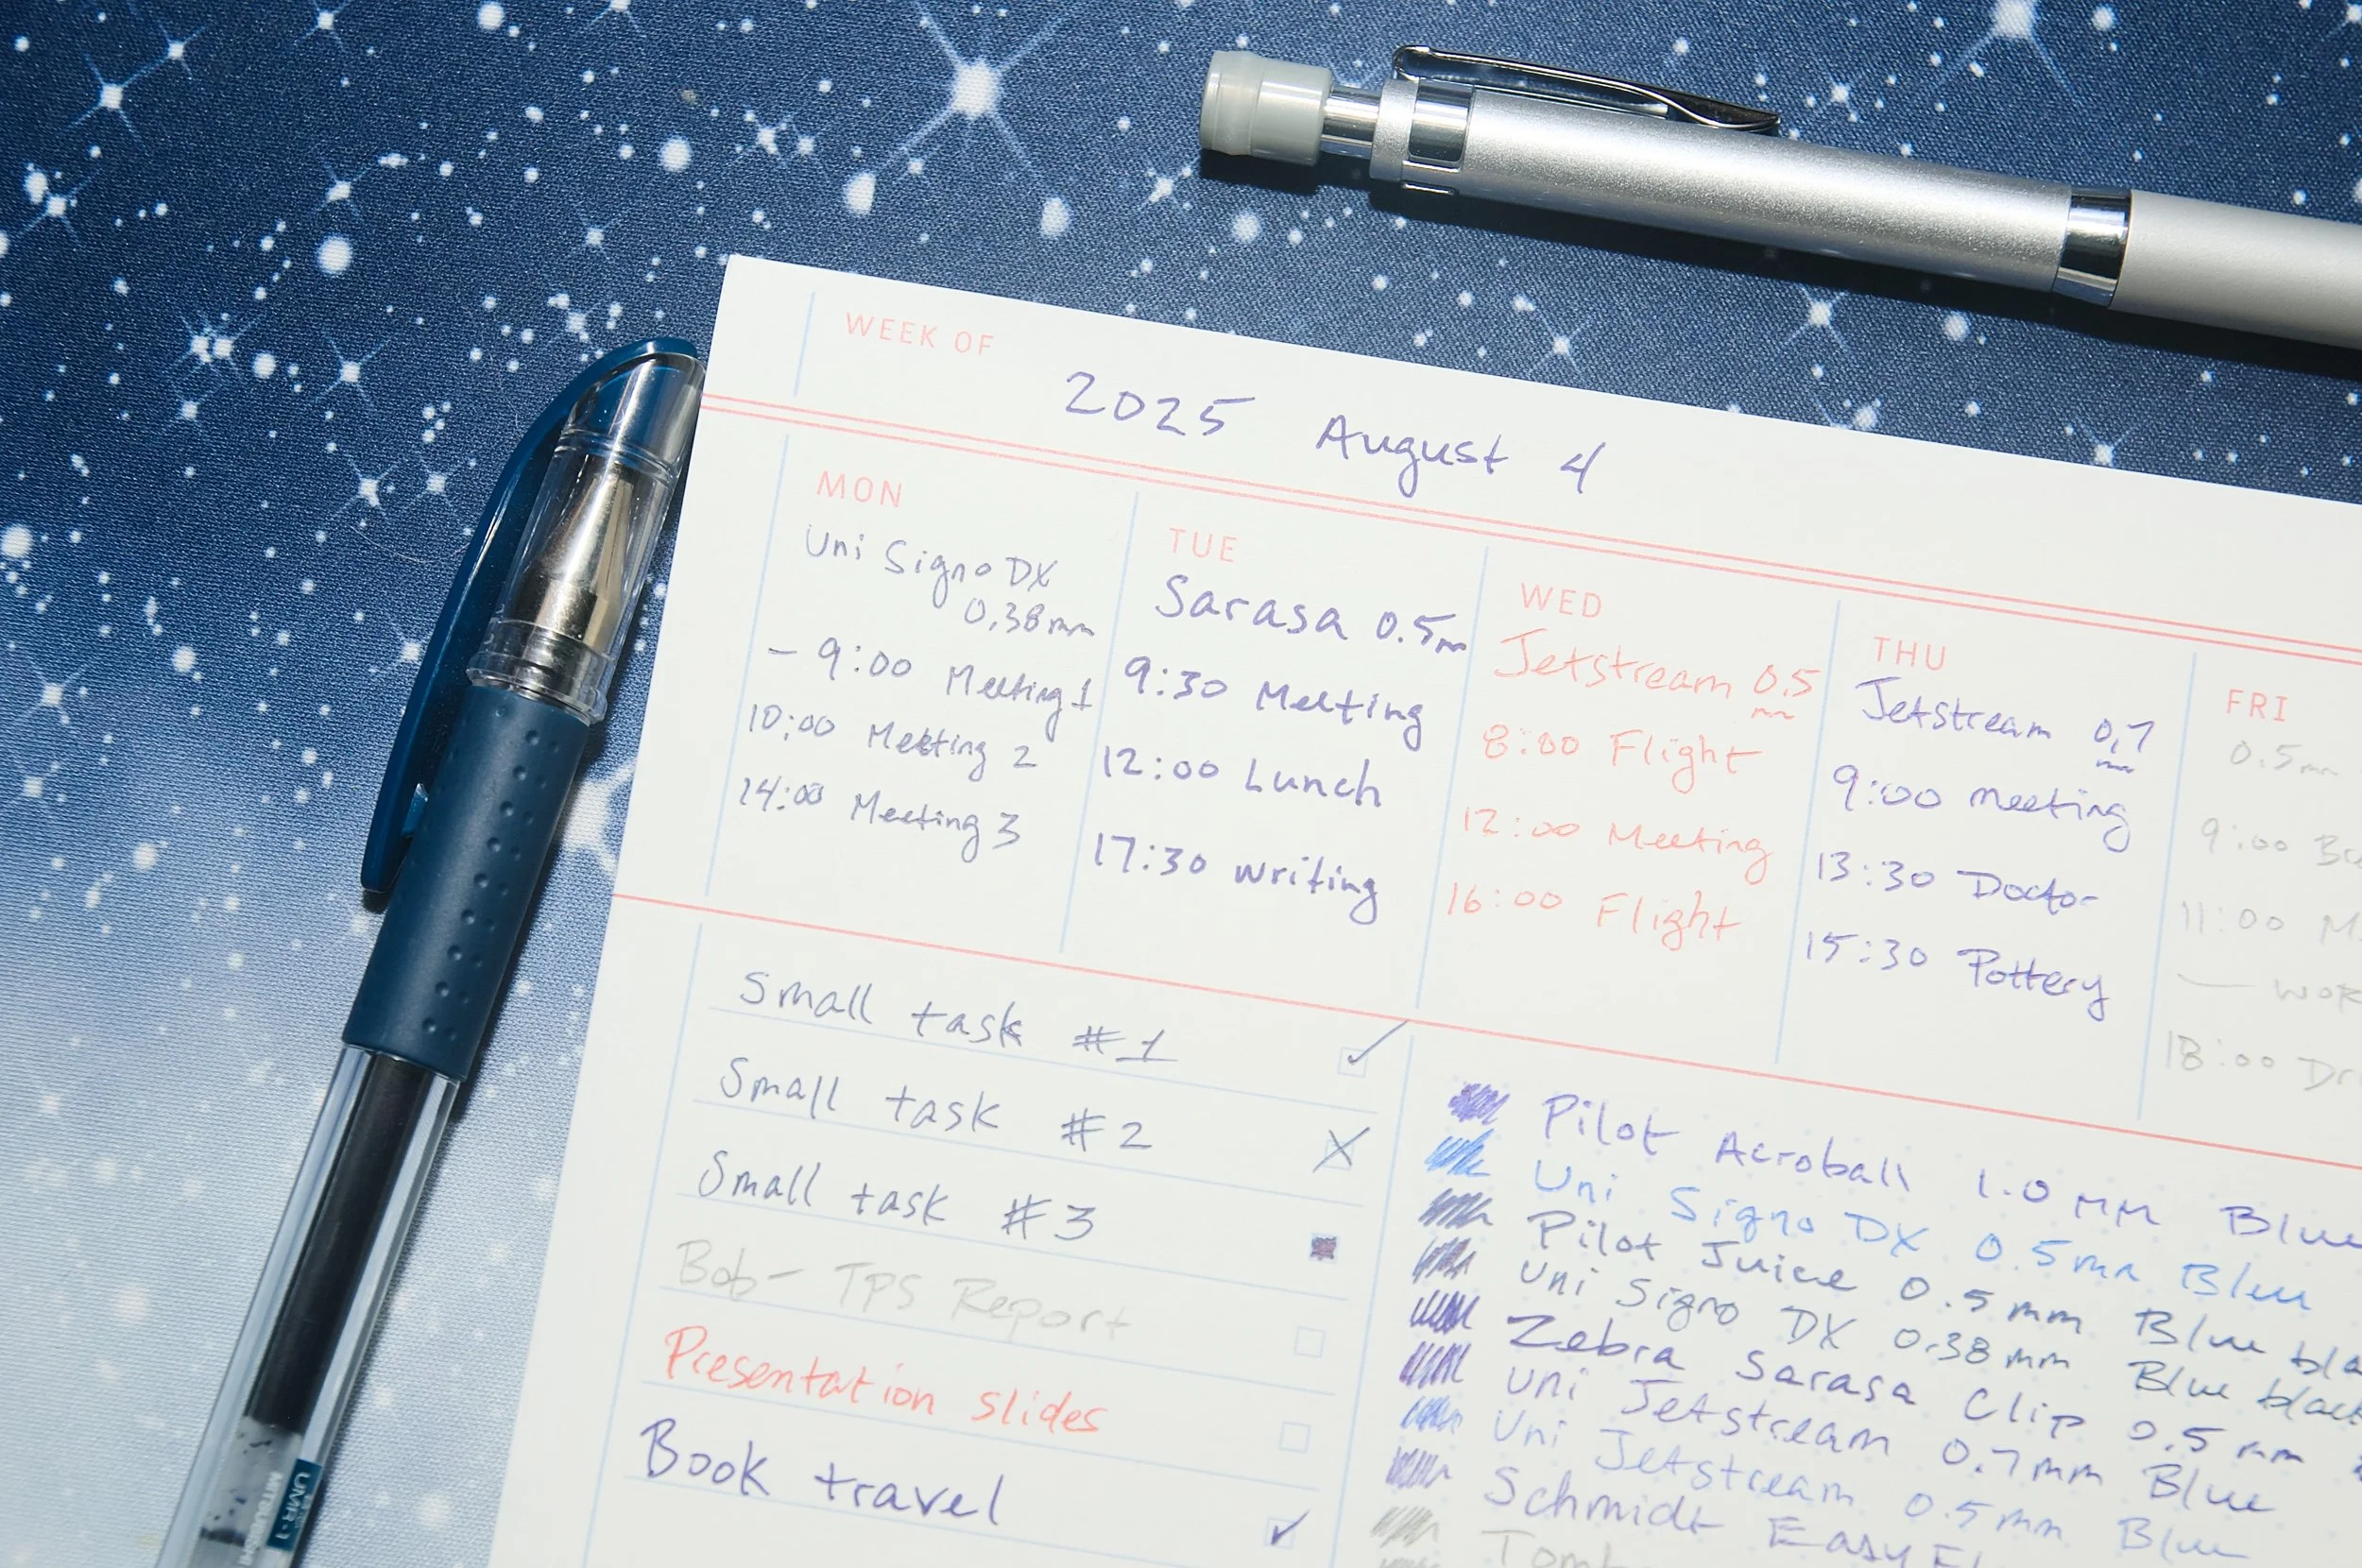 WEEK OF
2025 August 4
MON
Uni Signo DX
0.38mm
- 9:00 Meeting 1
10:00 Meeting 2
14:00 Meeting 3
TUE
Sarasa 0.5m
9:30 Meeting
12:00 Lunch
17:30 writing
WED
Jetstream 0.5
mm
8:00 Flight
12:00 Meeting
16:00 Flight
THU
Jetstream 0.7
mm
9:00 meeting
13:30 Doctor
15:30 Pottery
FRI
0.5mm
9:00
11:00
18:00
Small task #1
Small task #2
Small task #3
Bob- TPS Report
Presentation slides
Book travel
Pilot Acroball 1.0 mm Blue
Uni Signo DX 0.5mm Blue
Pilot Juice 0.5 mm Blue bla
Uni Signo DX 0.38 mm Blue black
Zebra Sarasa Clip 0.5 mm
Uni Jetstream 0.7mm Blue
Uni Jetstream 0.5mm Blue
Schmidt EasyFl
Tom
UMR-1